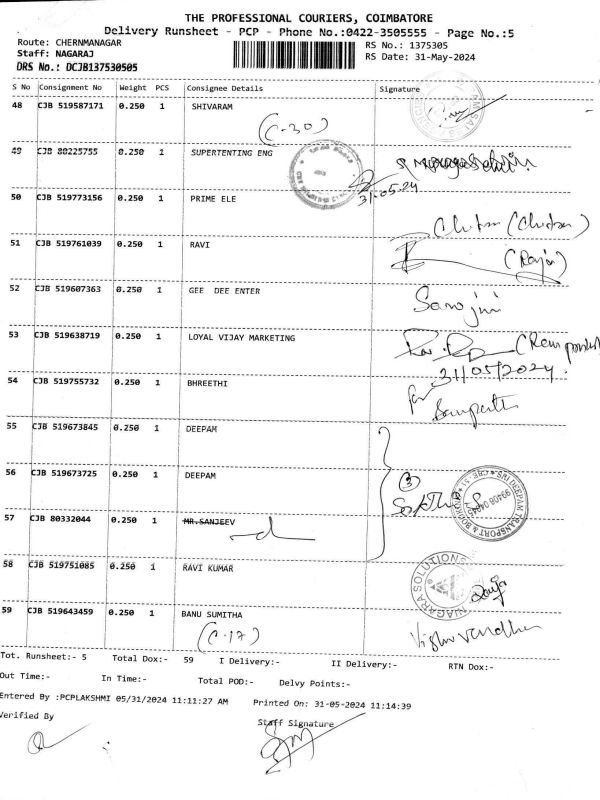 THE PROFESSIONAL COURIERS, COIMBATORE
Delivery Runsheet - PCP - Phone No.:0422-3505555 - Page No.:5
Route: CHERNMANAGAR RS No.: 1375305
Staff: NAGARAJ RS Date: 31-May-2024
DRS No.: DCJB137530505
S No Consignment No Weight PCS Consignee Details Signature
48 CJB 519587171 0.250 1 SHIVARAM
(C-30)
49 CJB 80225755 0.250 1 SUPERTENTING ENG
31-05-24
50 CJB 519773156 0.250 1 PRIME ELE
Chitra (Chitra)
51 CJB 519761039 0.250 1 RAVI
(Raja)
52 CJB 519607363 0.250 1 GEE DEE ENTER
Sarojini
53 CJB 519638719 0.250 1 LOYAL VIJAY MARKETING
31/05/2024.
54 CJB 519755732 0.250 1 BHREETHI
for
Sampath
55 CJB 519673845 0.250 1 DEEPAM
56 CJB 519673725 0.250 1 DEEPAM
3
SRI DEEPAM TRANSPORT & BOOKING
57 CJB 80332044 0.250 1 MR.SANJEEV
58 CJB 519751085 0.250 1 RAVI KUMAR
NIAGARA SOLUTIONS
59 CJB 519643459 0.250 1 BANU SUMITHA
(C-17)
Vishnuvardhan
Tot. Runsheet:- 5 Total Dox:- 59 I Delivery:- II Delivery:- RTN Dox:-
Out Time:- In Time:- Total POD:- Delvy Points:-
Entered By :PCPLAKSHMI 05/31/2024 11:11:27 AM Printed On: 31-05-2024 11:14:39
Verified By Staff Signature